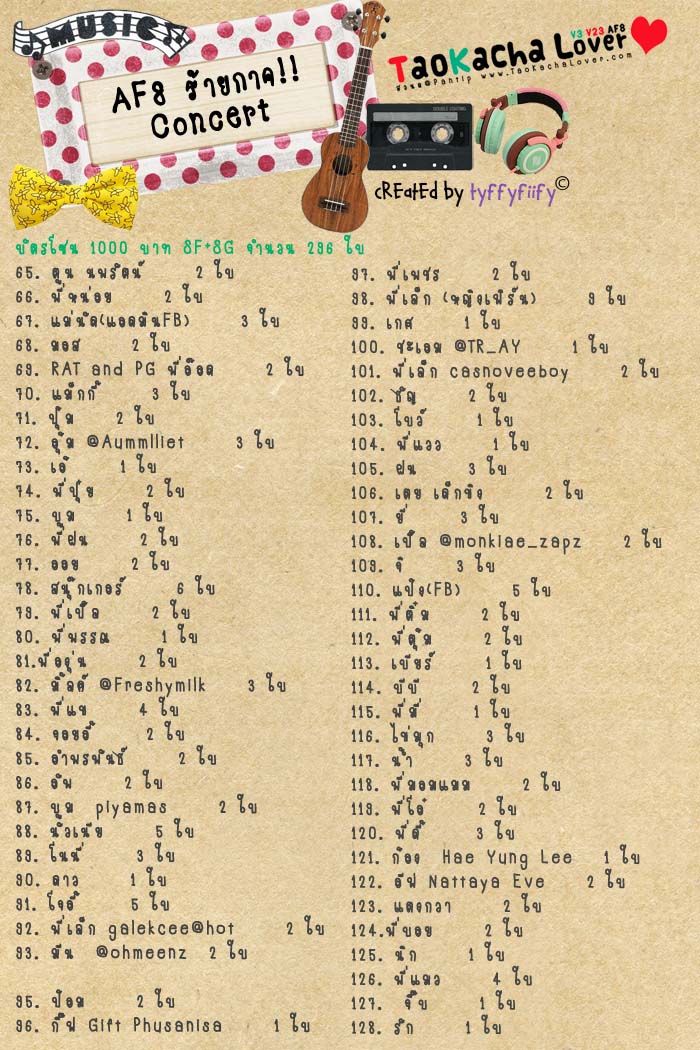 MUSIC
AF8 ร้ายกาจ!!
Concert
V3 V23 AF8
TaoKacha Lover
www.TaoKachaLover.com
DOUBLE COATING
crEatEd by tyffyfiify©
บัตรโซน 1000 บาท 8F+8G จำนวน 296 ใบ
65. ตูน นพรัตน์ 2 ใบ
66. พี่หน่อย 2 ใบ
67. แม่นัด(แอดมินFB) 3 ใบ
68. มอส 2 ใบ
69. RAT and PG พี่อ๊อด 2 ใบ
70. แม็กกี้ 3 ใบ
71. ปุ้ม 2 ใบ
72. อุ้ม @Aummlliet 3 ใบ
73. เอ้ 1 ใบ
74. พี่ปุ๋ย 2 ใบ
75. บูม 1 ใบ
76. พี่ฝน 2 ใบ
77. ออย 2 ใบ
78. สนุ๊กเกอร์ 6 ใบ
79. พี่เปิ้ล 2 ใบ
80. พี่พรรณ 1 ใบ
81.พี่องุ่น 2 ใบ
82. มิ้ลค์ @Freshymilk 3 ใบ
83. พี่แข 4 ใบ
84. จอยอี้ 2 ใบ
85. อำพรพันธ์ 2 ใบ
86. อัพ 2 ใบ
87. บูม piyamas 2 ใบ
88. นัวเนีย 5 ใบ
89. โนนี่ 3 ใบ
90. ดาว 1 ใบ
91. โจอี้ 5 ใบ
92. พี่เล็ก galekcee@hot 2 ใบ
93. มีน @ohmeenz 2 ใบ
95. ป้อม 2 ใบ
96. กิ๊ฟ Gift Phusanisa 1 ใบ
97. พี่เพชร 2 ใบ
98. พี่เล็ก (หญิงเฟิร์น) 9 ใบ
99. เกศ 1 ใบ
100. ชะเอม @TR_AY 1 ใบ
101. พี่เล็ก casnoveeboy 2 ใบ
102. ธัญ 2 ใบ
103. โบว์ 1 ใบ
104. พี่แวว 1 ใบ
105. ฝน 3 ใบ
106. เตย เด็กซิง 2 ใบ
107. ยี่ 3 ใบ
108. เปิ้ล @monkiae_zapz 2 ใบ
109. จิ 3 ใบ
110. แป้ง(FB) 5 ใบ
111. พี่ติ๋ม 2 ใบ
112. พี่ตุ้ม 2 ใบ
113. เบียร์ 1 ใบ
114. บีบี 2 ใบ
115. พี่มี่ 1 ใบ
116. ไข่มุก 3 ใบ
117. น้ำ 3 ใบ
118. พี่มอมแมม 2 ใบ
119. พี่โอ๋ 2 ใบ
120. พี่ดี้ 3 ใบ
121. ก้อง Hae Yung Lee 1 ใบ
122. อีฟ Nattaya Eve 2 ใบ
123. แตงกวา 2 ใบ
124.พี่บอย 2 ใบ
125. นัก 1 ใบ
126. พี่แมว 4 ใบ
127. จี๊บ 1 ใบ
128. รัก 1 ใบ